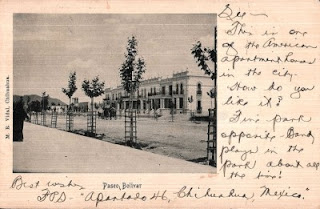 Dee —
This is one
of the American
apartment houses
in the city.
How do you
like it?
Fine park
opposite. Band
plays in the
park about all
the time!
M. E. Vidal, Chihuahua.
Paseo, Bolivar
Best wishes
"Apartado 46, Chihuahua, Mexico."